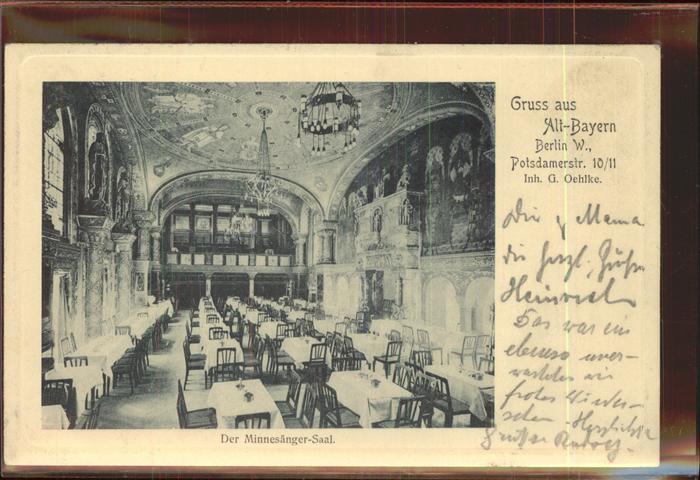 Gruss aus
Alt-Bayern
Berlin W.,
Potsdamerstr. 10/11
Inh. G. Oehlke.
Dir u Mama
die herzl. Grüße
Heinrich
Das war ein
ebenso uner-
wartetes wie
frohes Wieder-
sehen. Herzlichste
Grüsse
Der Minnesänger-Saal.